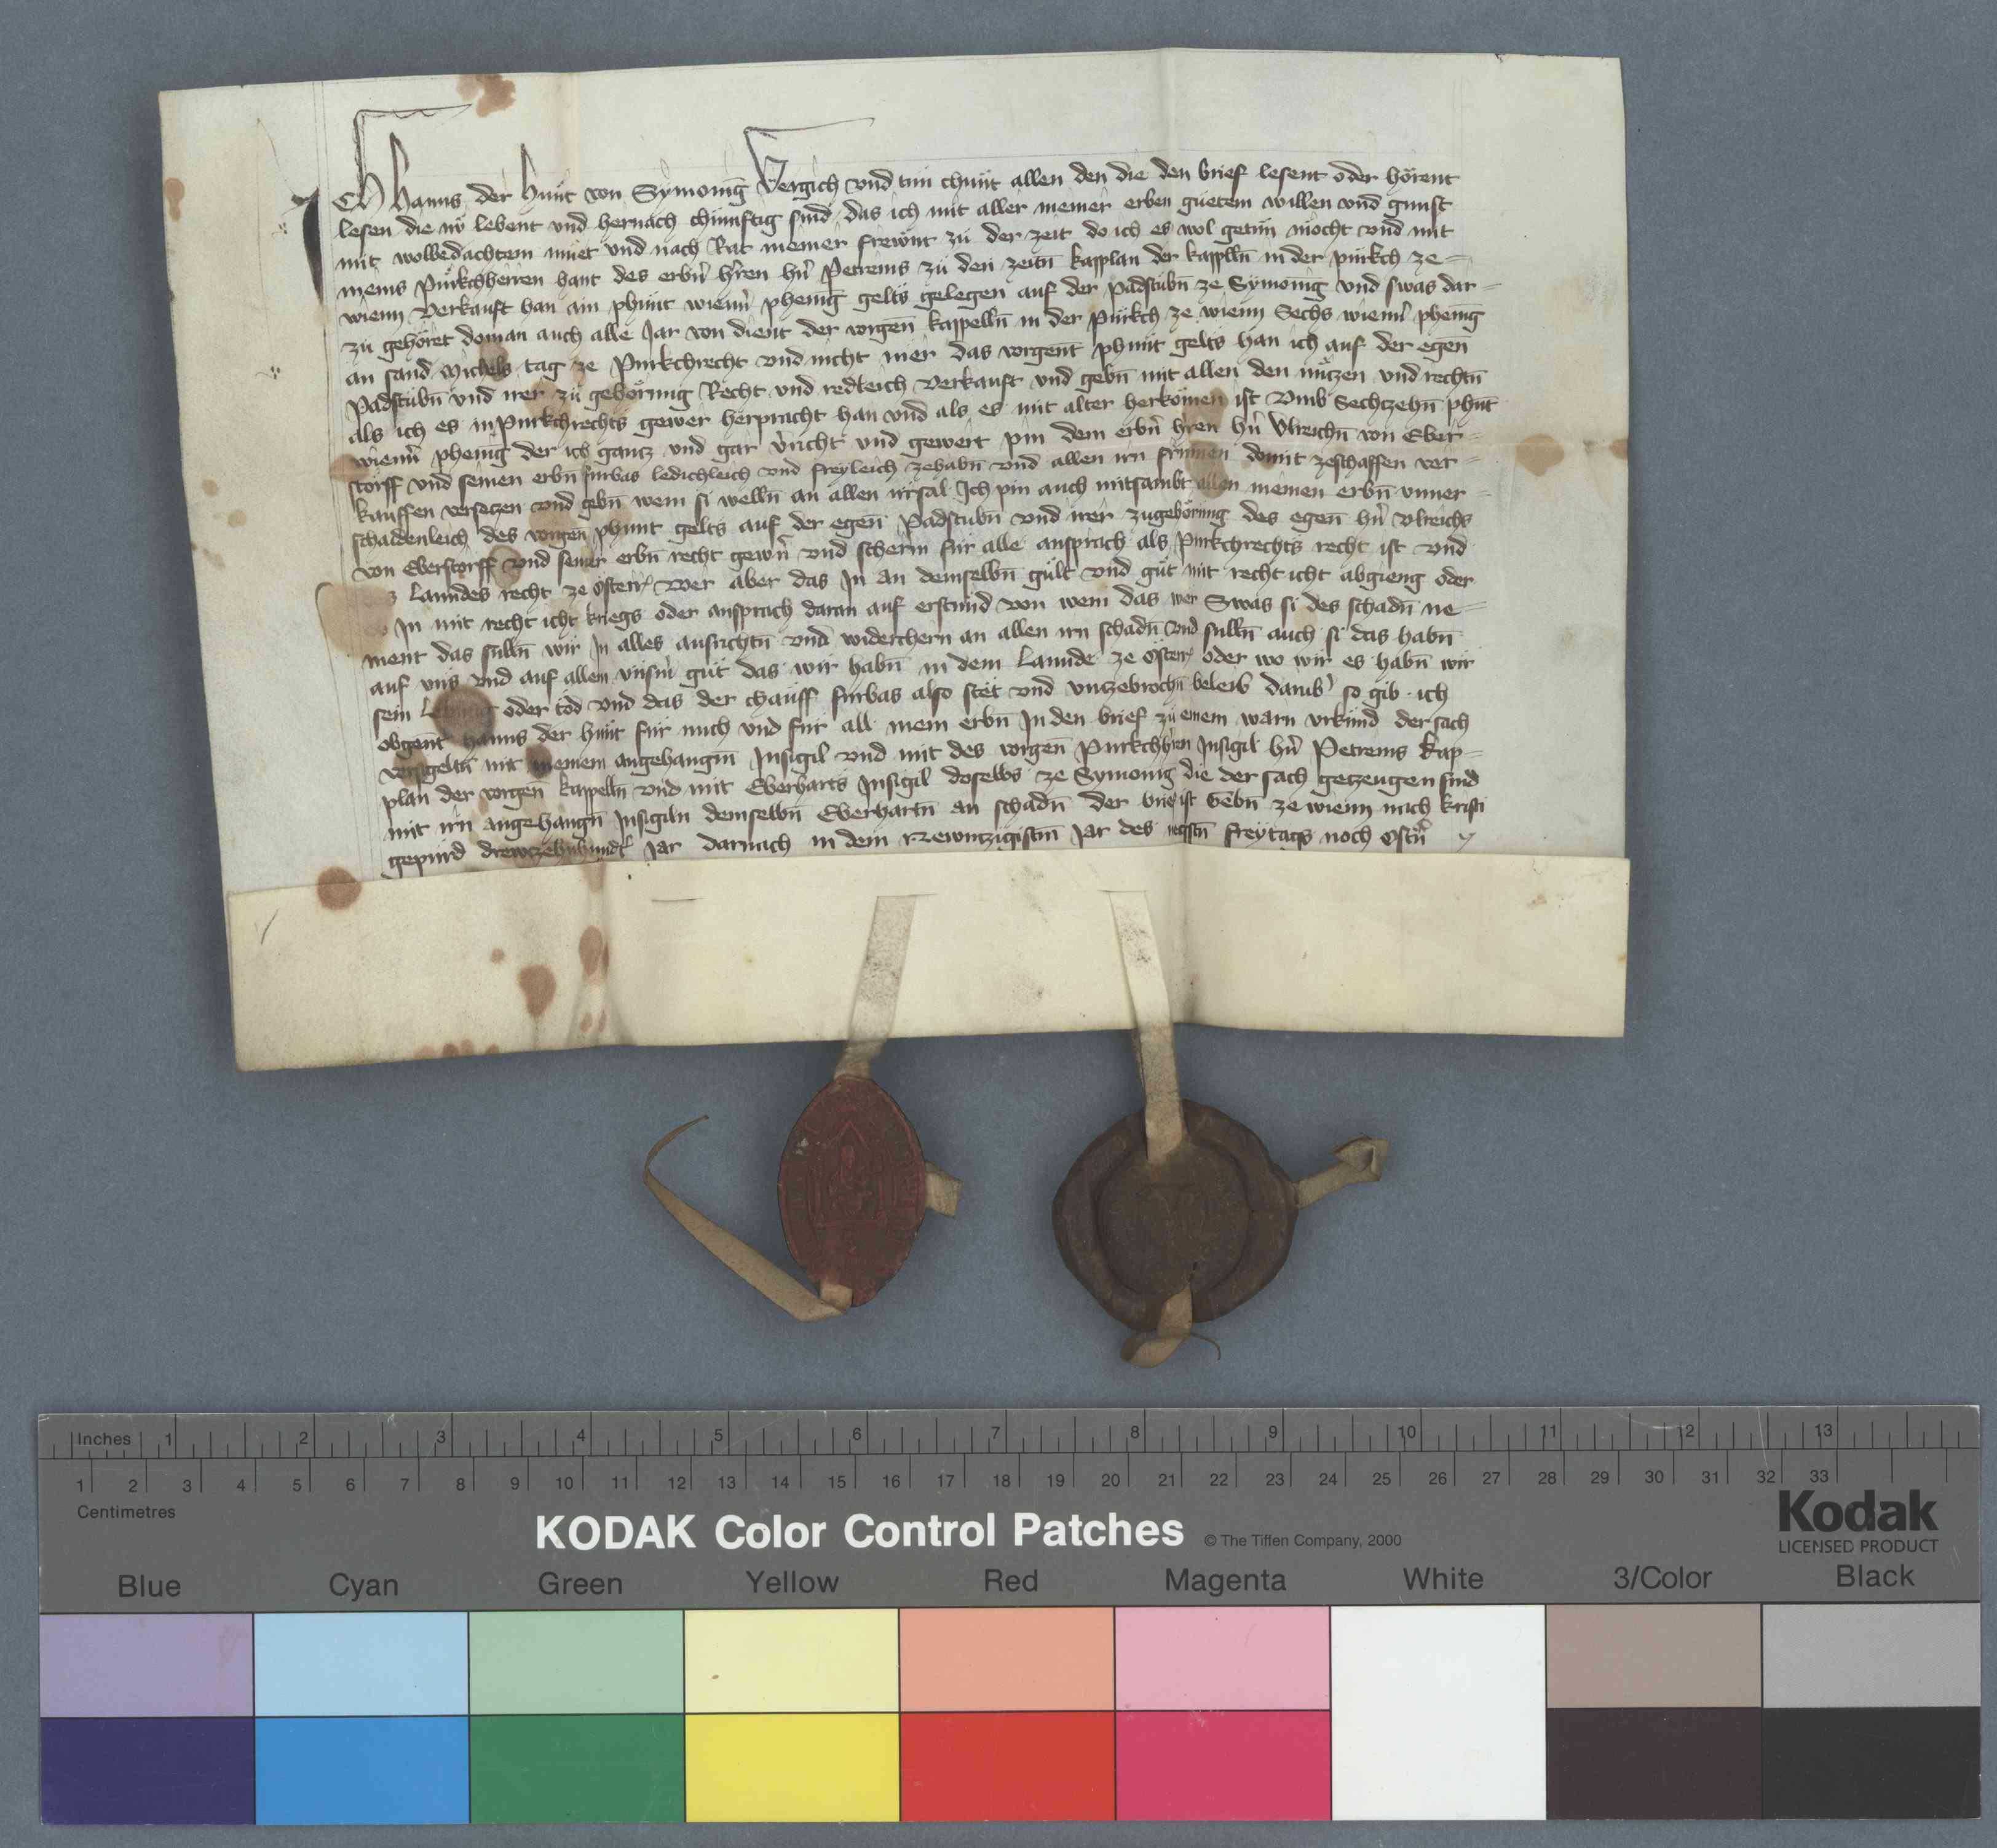 Ich Hanns der Hunt von Symoniḡ Vergich vnd tun chunt allen den die den brief lesent oder hörent
lesen die nv̈ lebent vnd hernach chunftig sind das ich mit aller meiner erben guetem willen vnd gunst
mit wolbedachtem muet vnd nach Rat meiner frewnt zu der zeit do ich es wol getun mocht vnd mit
meins Purkchherren hant des erbn̄ hr̄en hn̄ Petreins zu den zeitn̄ kapplan der kappelln̄ in der purkch ze=
wienn verkauft han ain phunt wienn̄ pheniḡ gelts gelegen auf der padstubn̄ ze Symonīg vnd swas dar=
zu gehöret doman auch alle Jar von dient der vorgen̄ kappelln̄ in der Purkch ze wienn Sechs wienn̄ pheniḡ
an sand Michels tag ze Purkchrecht vnd nicht mer das vorgent̄ phunt gelts han ich auf der egen̄
Padstubn̄ vnd irer zu gehörung Recht vnd redleich verkauft vnd gebn̄ mit allen den nüczen vnd rechtn̄
als ich es in Purkchrechts gewer herpracht han vnd als es mit alter herkōmen ist Vmb Sechtzehn̄ phūt
wienn̄ pheniḡ der ich gantz vnd gar v̄richt vnd gewert pin dem erbn̄ hr̄en hn̄ Vlreichn̄ von Eber=
storff vnd seinen erbn̄ furbas ledichleich vnd freyleich zehabn̄ vnd allen irn frumen domit zeschaffen ver=
kauffen versetzen vnd gebn̄ wem si welln̄ an allen irrsal Ich pin auch mitsambt allen meinen erbn̄ vnuer=
schaidenleich des vorgen̄ phunt gelts auf der egen̄ Padstubn̄ vnd irer zugehörung des egen̄ hn̄ Vlreichs
von Eberstorff vnd seiner erbn̄ recht gewn̄ vnd scherm für alle ansprach als Purkchrechts recht ist vnd
Lanndes recht ze Österr̄ wer aber das In an demselbn̄ gult vnd gut mit recht icht abgieng oder
In mit recht icht kriegs oder ansprach daran auf erstund von wem das wer Swas si des schadn̄ ne=
ment das sulln̄ wir In alles ausrichtn̄ vnd widerchern an allen irn schadn̄ vnd sulln̄ auch si das habn̄
auf vns vnd auf allem vnsm̄ gut das wir habn̄ in dem Lannde ze Österr̄ oder wo wir es habn̄ wir
sein Lebntig oder tod vnd das der chauff furbas also stet vnd vnczebrochn̄ beleib darub̄ so gib ich
obgent̄ Hanns der Hunt für mich vnd für all mein erbn̄ In den brief zu einem warn vrkund der sach
versigeltn̄ mit meinem angehangm̄ Insigil vnd mit des vorgen̄ Purkchhr̄en Insigil hn̄ Petreins kap=
plan der vorgen̄ kappelln̄ vnd mit Eberharts Insigil doselbs ze Symoniḡ die der sach getzeugen sind
mit irn angehangn̄ Insigiln demselbn̄ Eberhartn̄ an schadn̄ der brief ist Gebn̄ ze wienn nach kristi
gepurd drewczehnhundt̄ Jar darnach in dem Newntzigistm̄ Jar des negstn̄ freytags noch Ostn̄
Inches 1 2 3 4 5 6 7 8 9 10 11 12 13
1 2 3 4 5 6 7 8 9 10 11 12 13 14 15 16 17 18 19 20 21 22 23 24 25 26 27 28 29 30 31 32 33
Centimetres
KODAK Color Control Patches © The Tiffen Company, 2000
Kodak
LICENSED PRODUCT
Blue Cyan Green Yellow Red Magenta White 3/Color Black